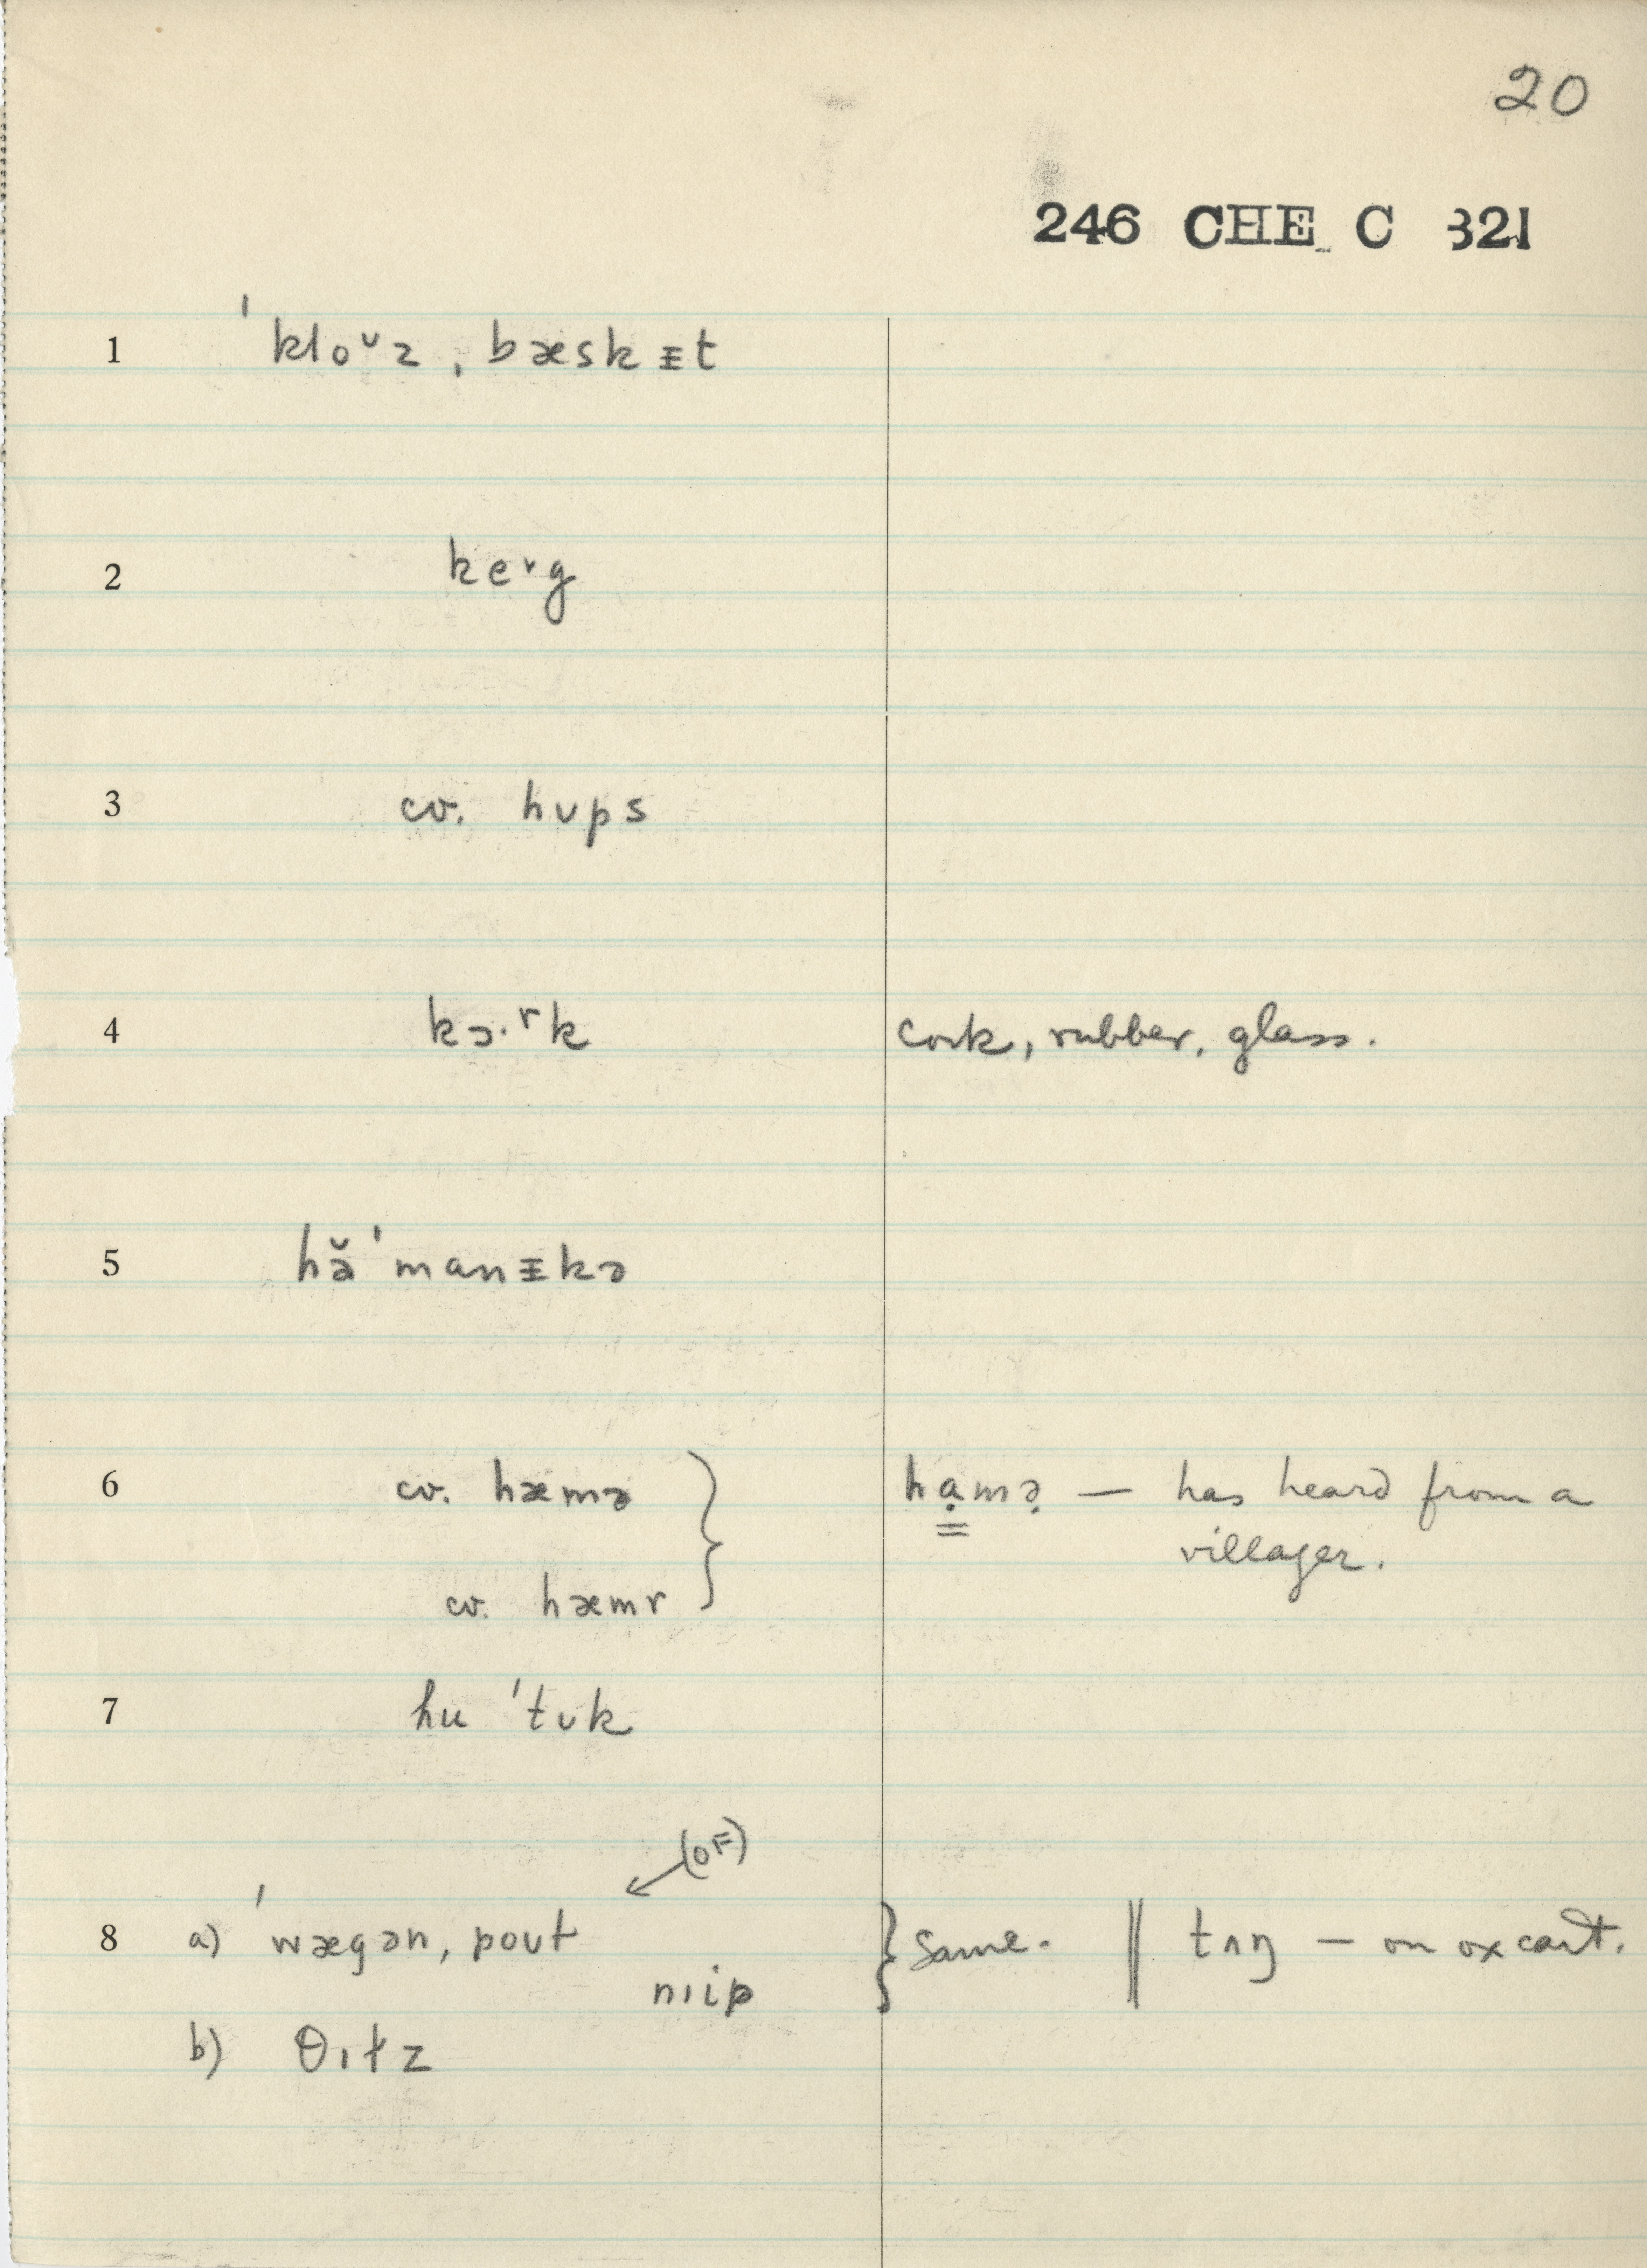 20
246 CHE C 321
1 ˈkloᴜz, bæskᵻt
2 keˑg
3 cv. hʊps
4 kɔ·ʳk cork, rubber, glass.
5 hə̆ˈmanᵻkə
6 cv. hæmə } hạmə̣ — has heard from a
villager.
cv. hæmr
7 hu ˈtʊk
(OF)
8 a) ˈwægən, pout } same. ‖ tʌŋ — on ox cart.
nɪip
b) θɪłz